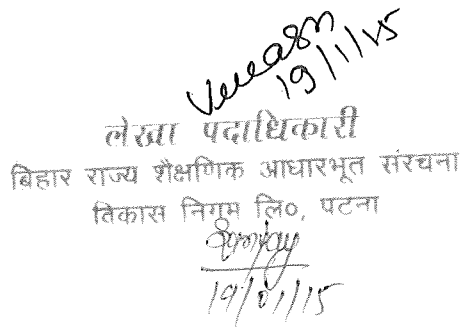 19/1/15
लेखा पदाधिकारी
बिहार राज्य शैक्षणिक आधारभूत संरचना
विकास निगम लि०, पटना
19/01/15